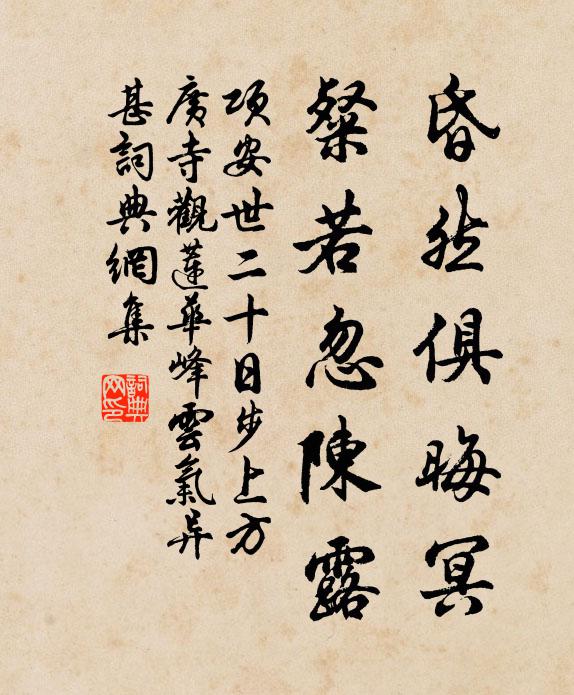 昏然俱晦冥
粲若忽陳露
項安世二十日步上方
廣寺觀蓮華峰雲氣异
甚詞典網集
詞典
网印